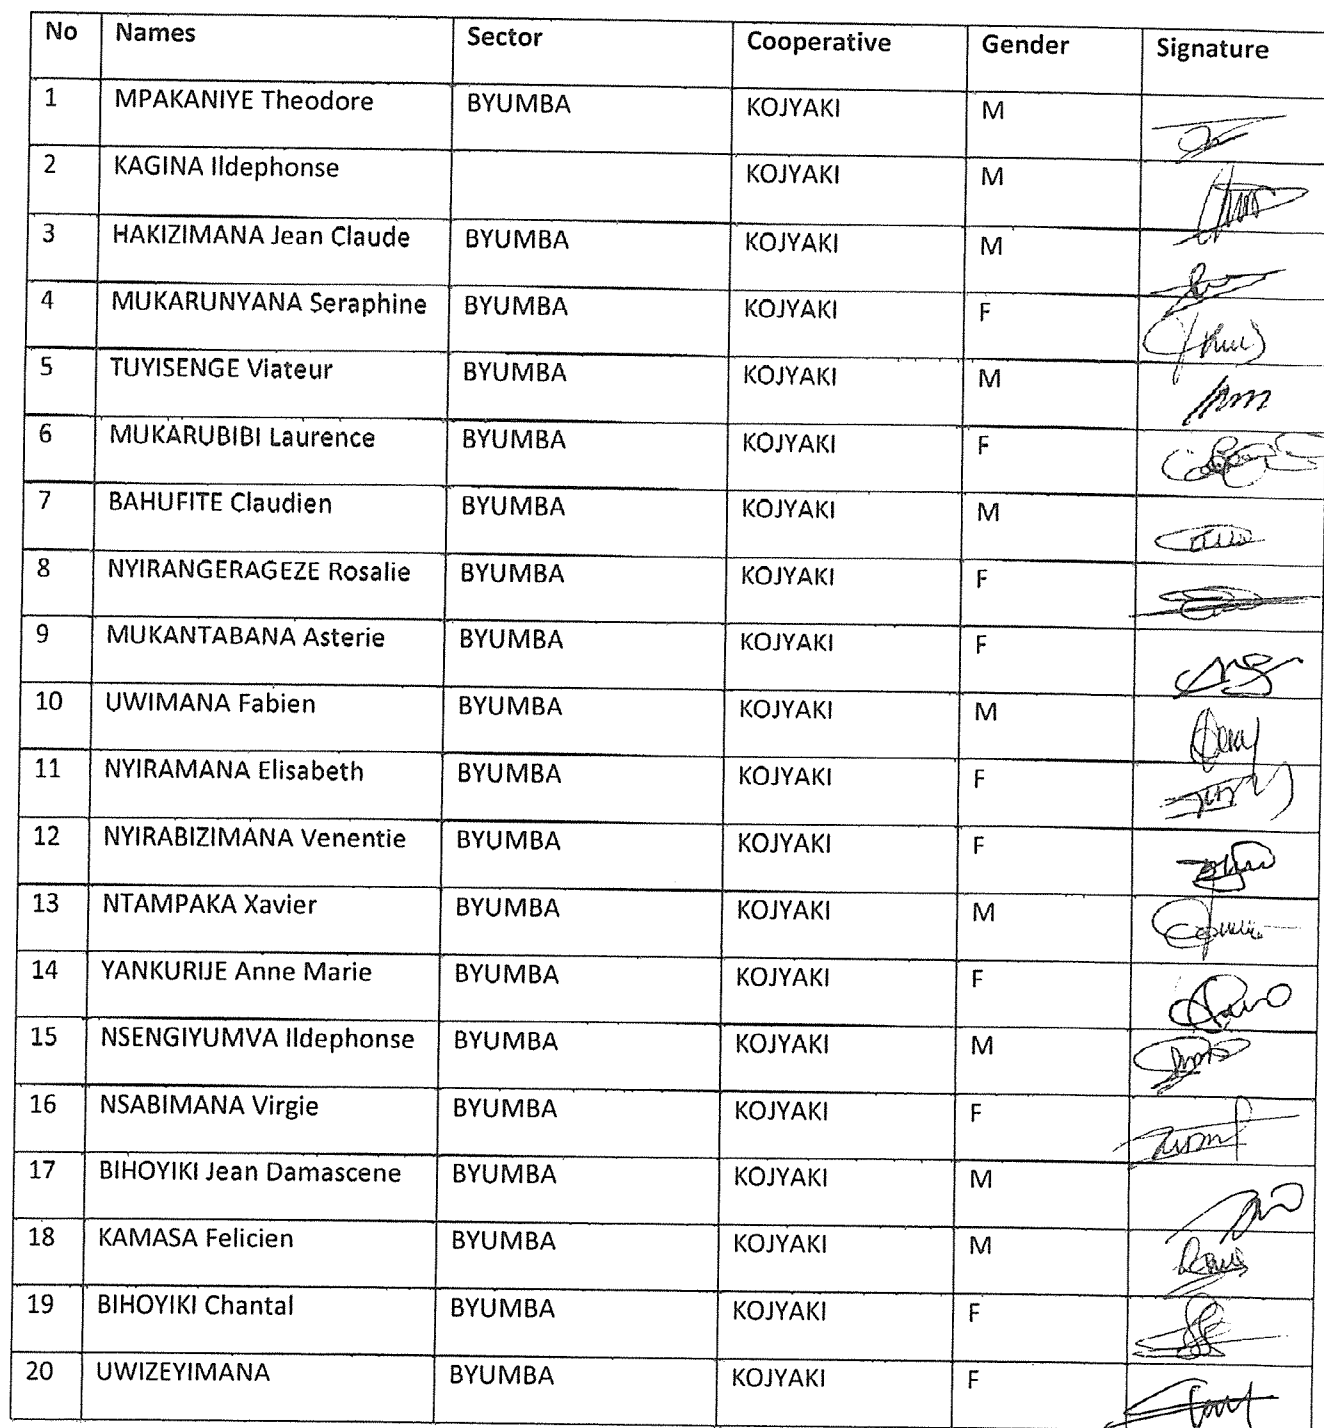 No Names Sector Cooperative Gender Signature
1 MPAKANIYE Theodore BYUMBA KOJYAKI M
2 KAGINA Ildephonse KOJYAKI M
3 HAKIZIMANA Jean Claude BYUMBA KOJYAKI M
4 MUKARUNYANA Seraphine BYUMBA KOJYAKI F
5 TUYISENGE Viateur BYUMBA KOJYAKI M
6 MUKARUBIBI Laurence BYUMBA KOJYAKI F
7 BAHUFITE Claudien BYUMBA KOJYAKI M
8 NYIRANGERAGEZE Rosalie BYUMBA KOJYAKI F
9 MUKANTABANA Asterie BYUMBA KOJYAKI F
10 UWIMANA Fabien BYUMBA KOJYAKI M
11 NYIRAMANA Elisabeth BYUMBA KOJYAKI F
12 NYIRABIZIMANA Venentie BYUMBA KOJYAKI F
13 NTAMPAKA Xavier BYUMBA KOJYAKI M
14 YANKURIJE Anne Marie BYUMBA KOJYAKI F
15 NSENGIYUMVA Ildephonse BYUMBA KOJYAKI M
16 NSABIMANA Virgie BYUMBA KOJYAKI F
17 BIHOYIKI Jean Damascene BYUMBA KOJYAKI M
18 KAMASA Felicien BYUMBA KOJYAKI M
19 BIHOYIKI Chantal BYUMBA KOJYAKI F
20 UWIZEYIMANA BYUMBA KOJYAKI F